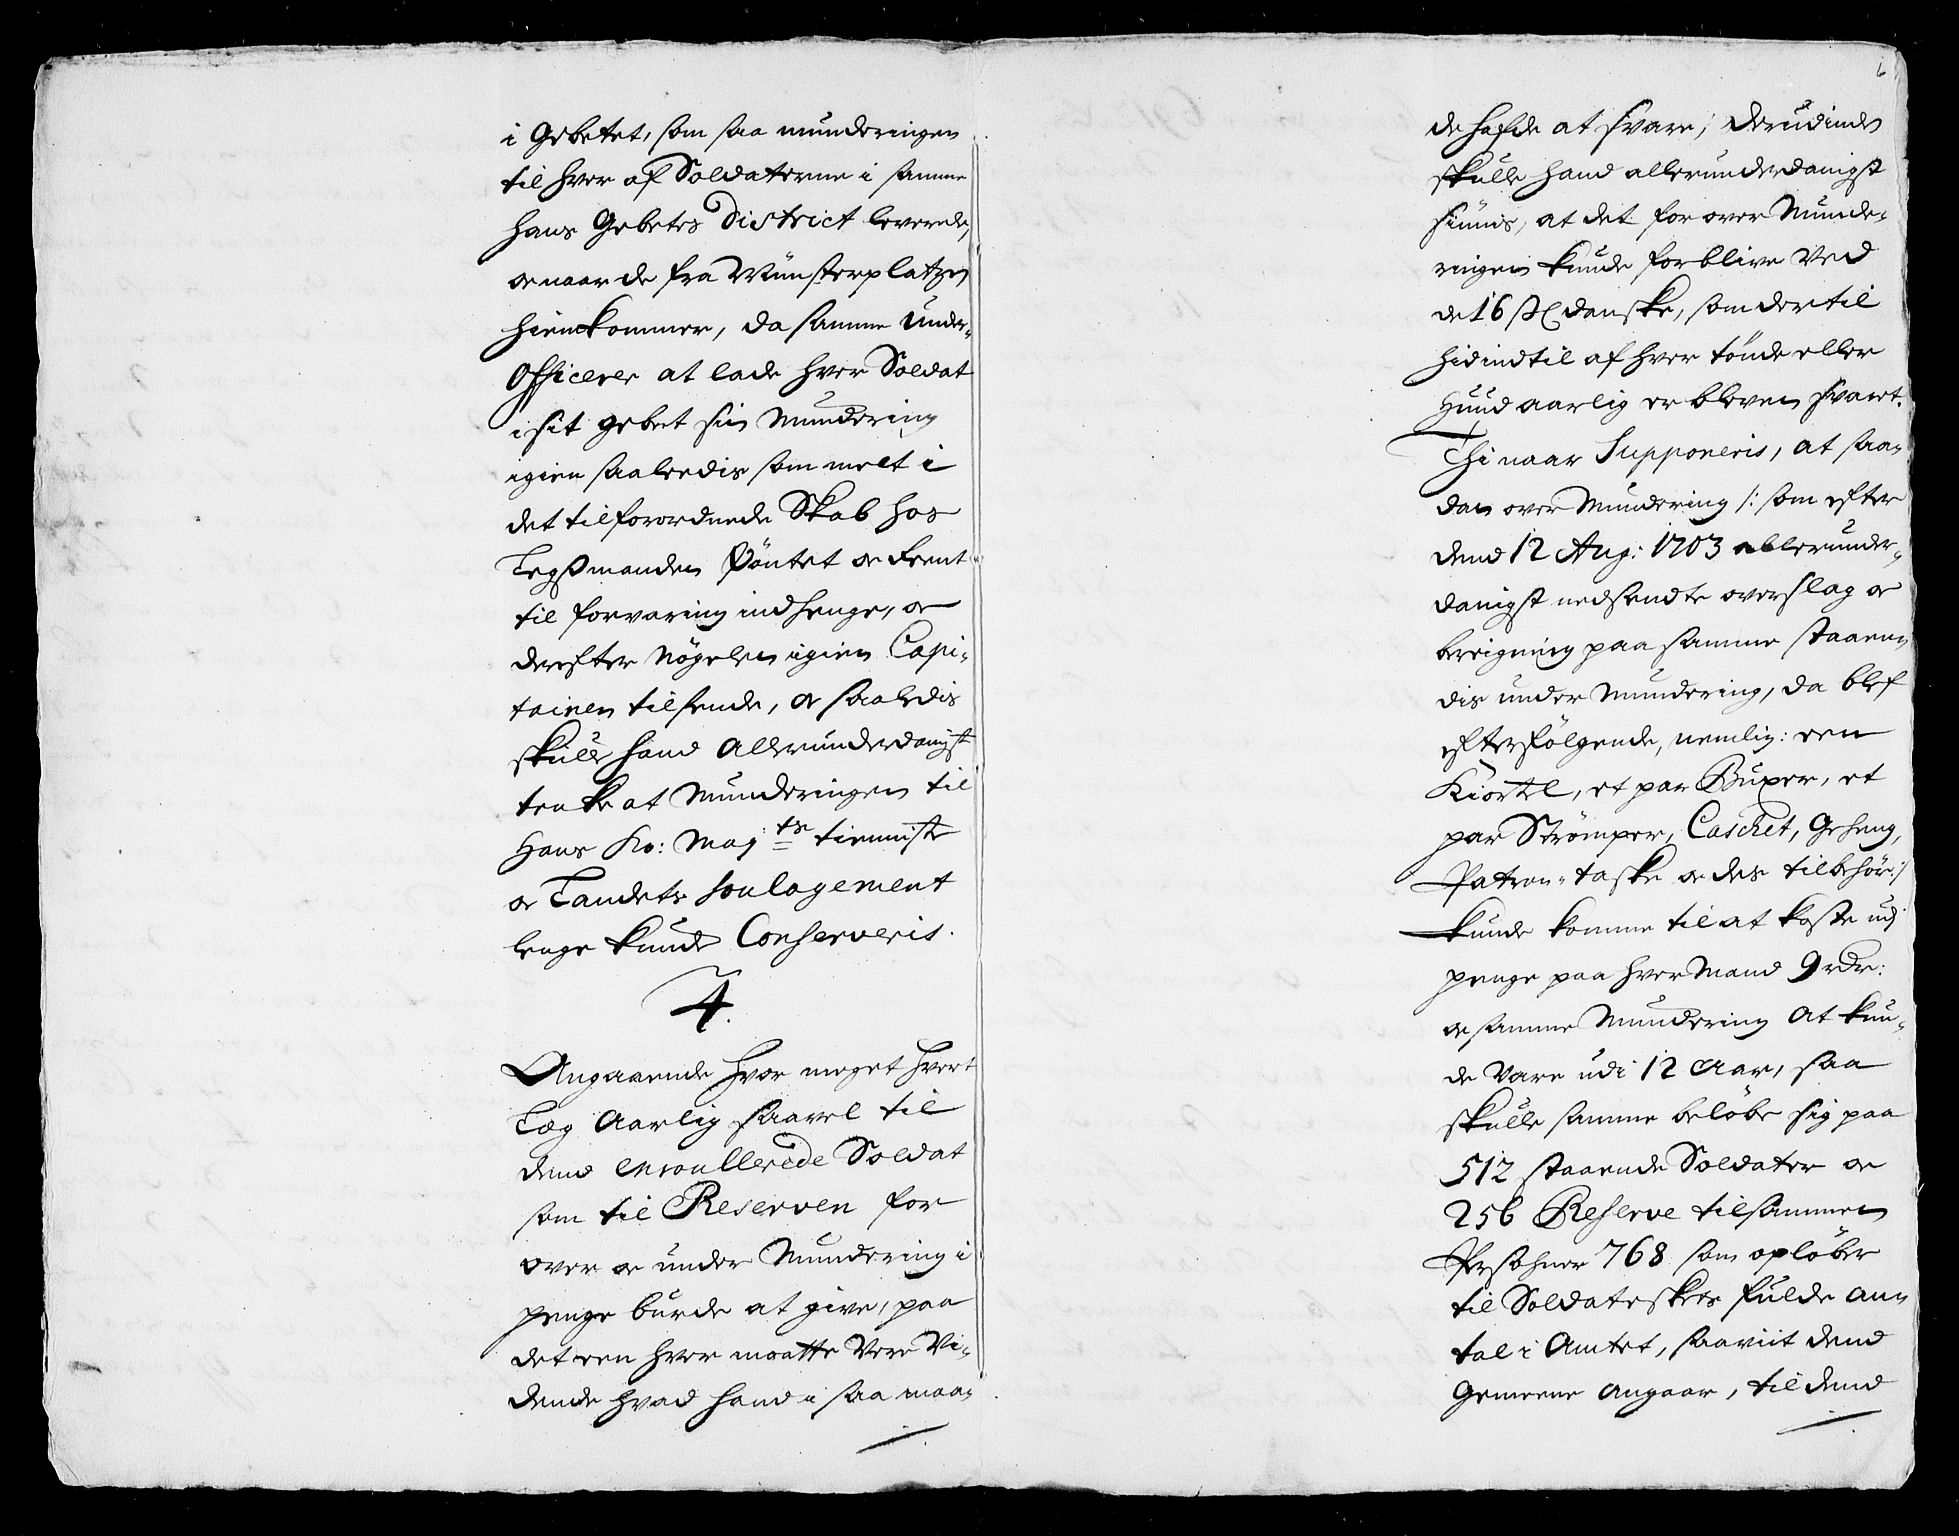 i Gebetet, som saa munderingen
til hver af Soldaterne i samme
hans Gebets District leverede,
og naar de fra Münsterplatzen
hiemkommer, da samme Under-
Officerer at lade hver Soldat
i sit gebeet sin Mundering
igien saaledis som melt i
det tilforordnede Skab hos
Legßmanden Pöntet og Reent
til forvaring indhenge, og
derefter Nögelen igien Capi-
tainen tilsende, og saaledis
skulle hand Allerunderdanigst
tenke at Munderingen til
Hans Ko: May:ts tienniste
og Landets Soulagement
lenge kunde Conserveris.
4.
Angaaende hvor meget hvert
Læg Aarlig saavel til
dend enroullerede Soldat
som til Reserven for
over og under Mundering i
penge burde at give, paa
det een hver maatte Vere Vi-
dende hvad hand i saa maa-
6
de hafde at svare; derudinden
skulle hand allerunderdanigst
siunis, at det for over Munde-
ringen kunde forblive Ved
de 16 ſß danske, som der til
hidindtil af hver tönde eller
Huud aarlig er bleven svaret.
Thi naar Supponeris, at saa-
dan over Mundering /: som efter
dend 12 Aug: 1703 allerunder-
danigst nedsendte overslag og
bereigning paa samme staaen-
dis under Mundering, da blef
efterfölgende, nemlig: een
Kiortel, et par Buxer, et
par Strömper, Caschet, Geheng,
Patron-taske og des tilbehör :/
kunde komme til at koste udj
penge paa hver Mand 9 rdr:
og samme Mundering At kun-
de Vare udi 12 Aar, saa
skulle samme belöbe sig paa
512 staaende Soldater og
256 Reserve tilsammen
Persohner 768 som oplöber
til Soldateskets fulde An-
tal i Amtet, saaviit dend
Gemeene Angaar, til dend